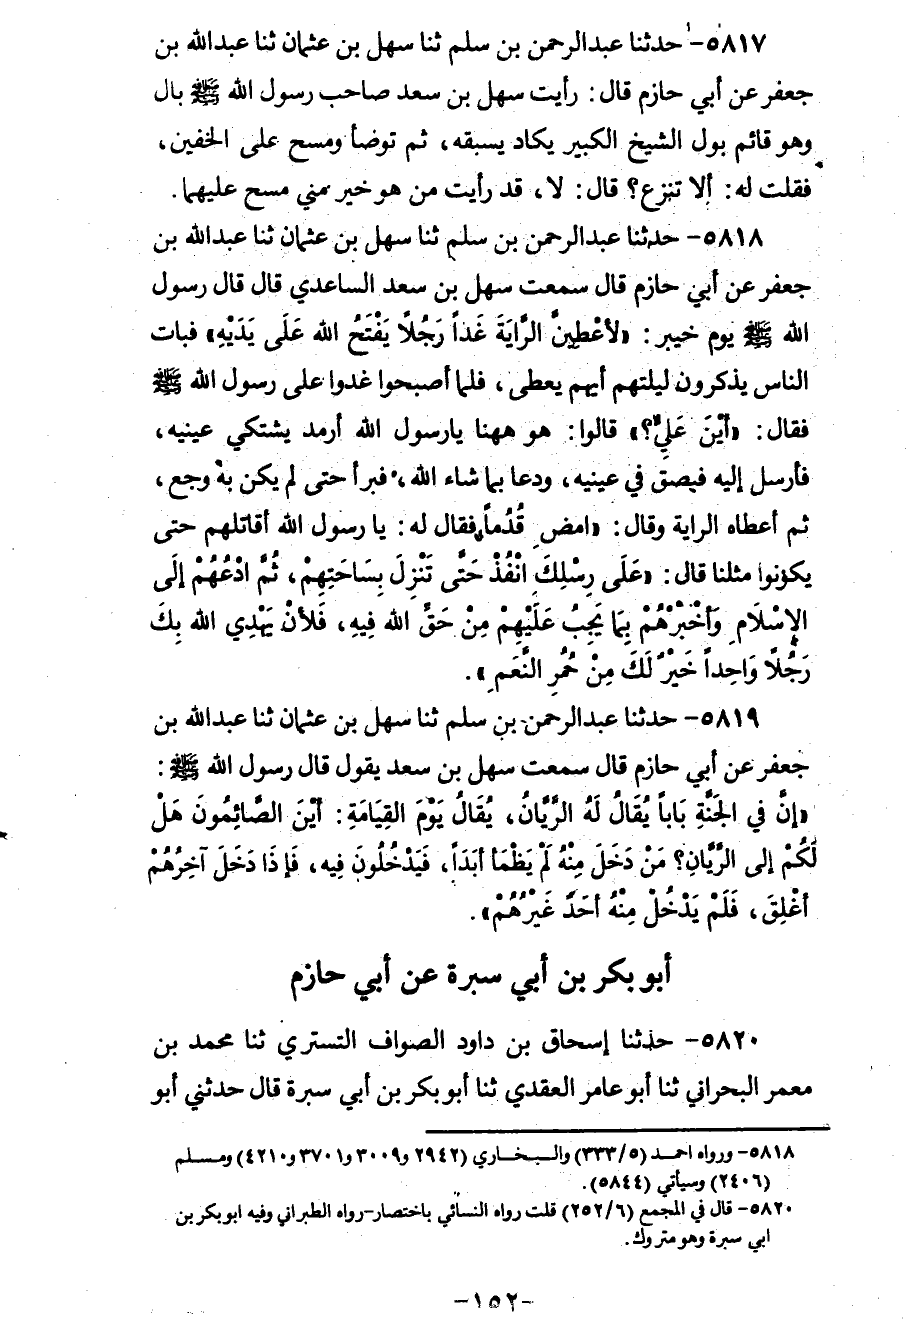 ٥٨١٧- حدثنا عبدالرحمن بن سلم ثنا سهل بن عثمان ثنا عبدالله بن
جعفر عن أبي حازم قال: رأيت سهل بن سعد صاحب رسول الله ﷺ بال
وهو قائم بول الشيخ الكبير يكاد يسبقه، ثم توضأ ومسح على الخفين،
فقلت له: ألا تنزع؟ قال: لا، قد رأيت من هو خير مني مسح عليهما.
٥٨١٨- حدثنا عبدالرحمن بن سلم ثنا سهل بن عثمان ثنا عبدالله بن
جعفر عن أبي حازم قال سمعت سهل بن سعد الساعدي قال قال رسول
الله ﷺ يوم خيبر: «لأعْطِينَّ الرَّايَةَ غَداً رَجُلًا يَفْتَحُ الله عَلَى يَدَيْهِ» فبات
الناس يذكرون ليلتهم أيهم يعطى، فلما أصبحوا غدوا على رسول الله ﷺ
فقال: «أيْنَ عَلِيٌّ؟» قالوا: هو ههنا يارسول الله أرمد يشتكي عينيه،
فأرسل إليه فبصق في عينيه، ودعا بما شاء الله، فبرأ حتى لم يكن به وجع،
ثم أعطاه الراية وقال: «امضِ قُدُماً» فقال له: يا رسول الله أقاتلهم حتى
يكونوا مثلنا قال: «عَلَى رِسْلِكَ انْفُذْ حَتَّى تَنْزِلَ بِسَاحَتِهِمْ، ثُمَّ ادْعُهُمْ إلَى
الإسْلَامِ وَأخْبِرْهُمْ بِمَا يَجِبُ عَلَيْهِمْ مِنْ حَقِّ الله فِيهِ، فَلأنْ يَهْدِي الله بِكَ
رَجُلًا وَاحِداً خَيْرٌ لَكَ مِنْ حُمُرِ النَّعَمِ».
٥٨١٩- حدثنا عبدالرحمن بن سلم ثنا سهل بن عثمان ثنا عبدالله بن
جعفر عن أبي حازم قال سمعت سهل بن سعد يقول قال رسول الله ﷺ:
«إنَّ في الجَنَّةِ بَاباً يُقَالُ لَهُ الرَّيَّانُ، يُقَالُ يَوْمَ القِيَامَةِ: أيْنَ الصَّائِمُونَ هَلْ
لَكُمْ إلى الرَّيَّانِ؟ مَنْ دَخَلَ مِنْهُ لَمْ يَظْمَأ أبَدَاً، فَيَدْخُلُونَ فِيه، فَإذَا دَخَلَ آخِرُهُمْ
أغْلِقَ، فَلَمْ يَدْخُلْ مِنْهُ أحَدٌ غَيْرُهُمْ».
أبو بكر بن أبي سبرة عن أبي حازم
٥٨٢٠- حدثنا إسحاق بن داود الصواف التستري ثنا محمد بن
معمر البحراني ثنا أبو عامر العقدي ثنا أبو بكر بن أبي سبرة قال حدثني أبو
٥٨١٨- ورواه احمد (٣٣٣/٥) والبخاري (٢٩٤٢ و٣٠٠٩ و٣٧٠١ و٤٢١٠) ومسلم
(٢٤٠٦) وسيأتي (٥٨٤٤).
٥٨٢٠- قال في المجمع (٢٥٢/٦) قلت رواه النسائي باختصار-رواه الطبراني وفيه ابو بكر بن
ابي سبرة وهو متروك.
-١٥٢-